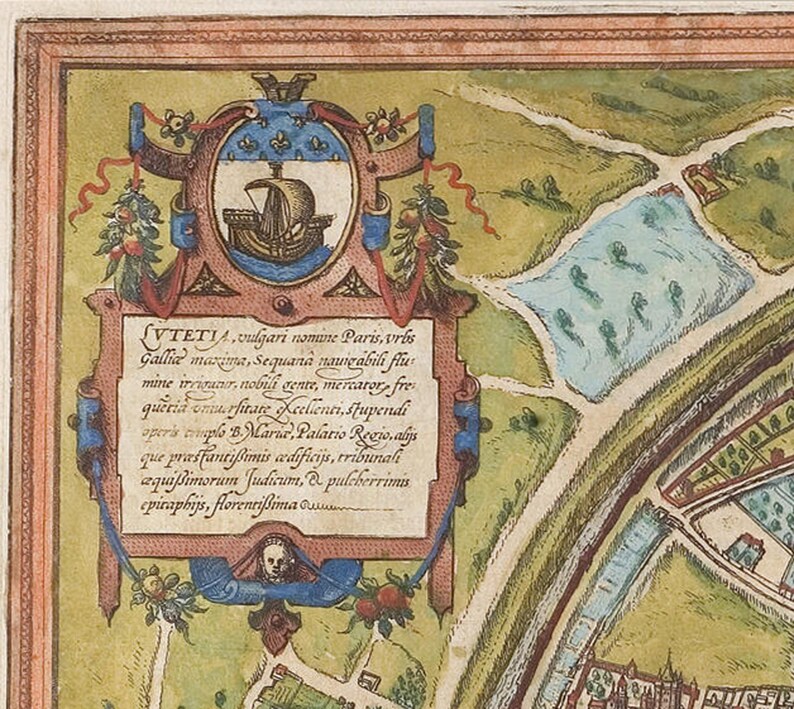 LVTETIA, vulgari nomine Paris, vrbs
Galliæ maxima, Sequanâ nauigabili flu-
mine irrigatur, nobili gente, mercatorũ fre-
quẽtiâ vniuersitate excellenti, stupendi
operis templo B. Mariæ, Palatio Regio, alijs
que præstantißimis ædificijs, tribunali
æquißimorum Judicum, & pulcherrimis
epitaphijs, florentißima